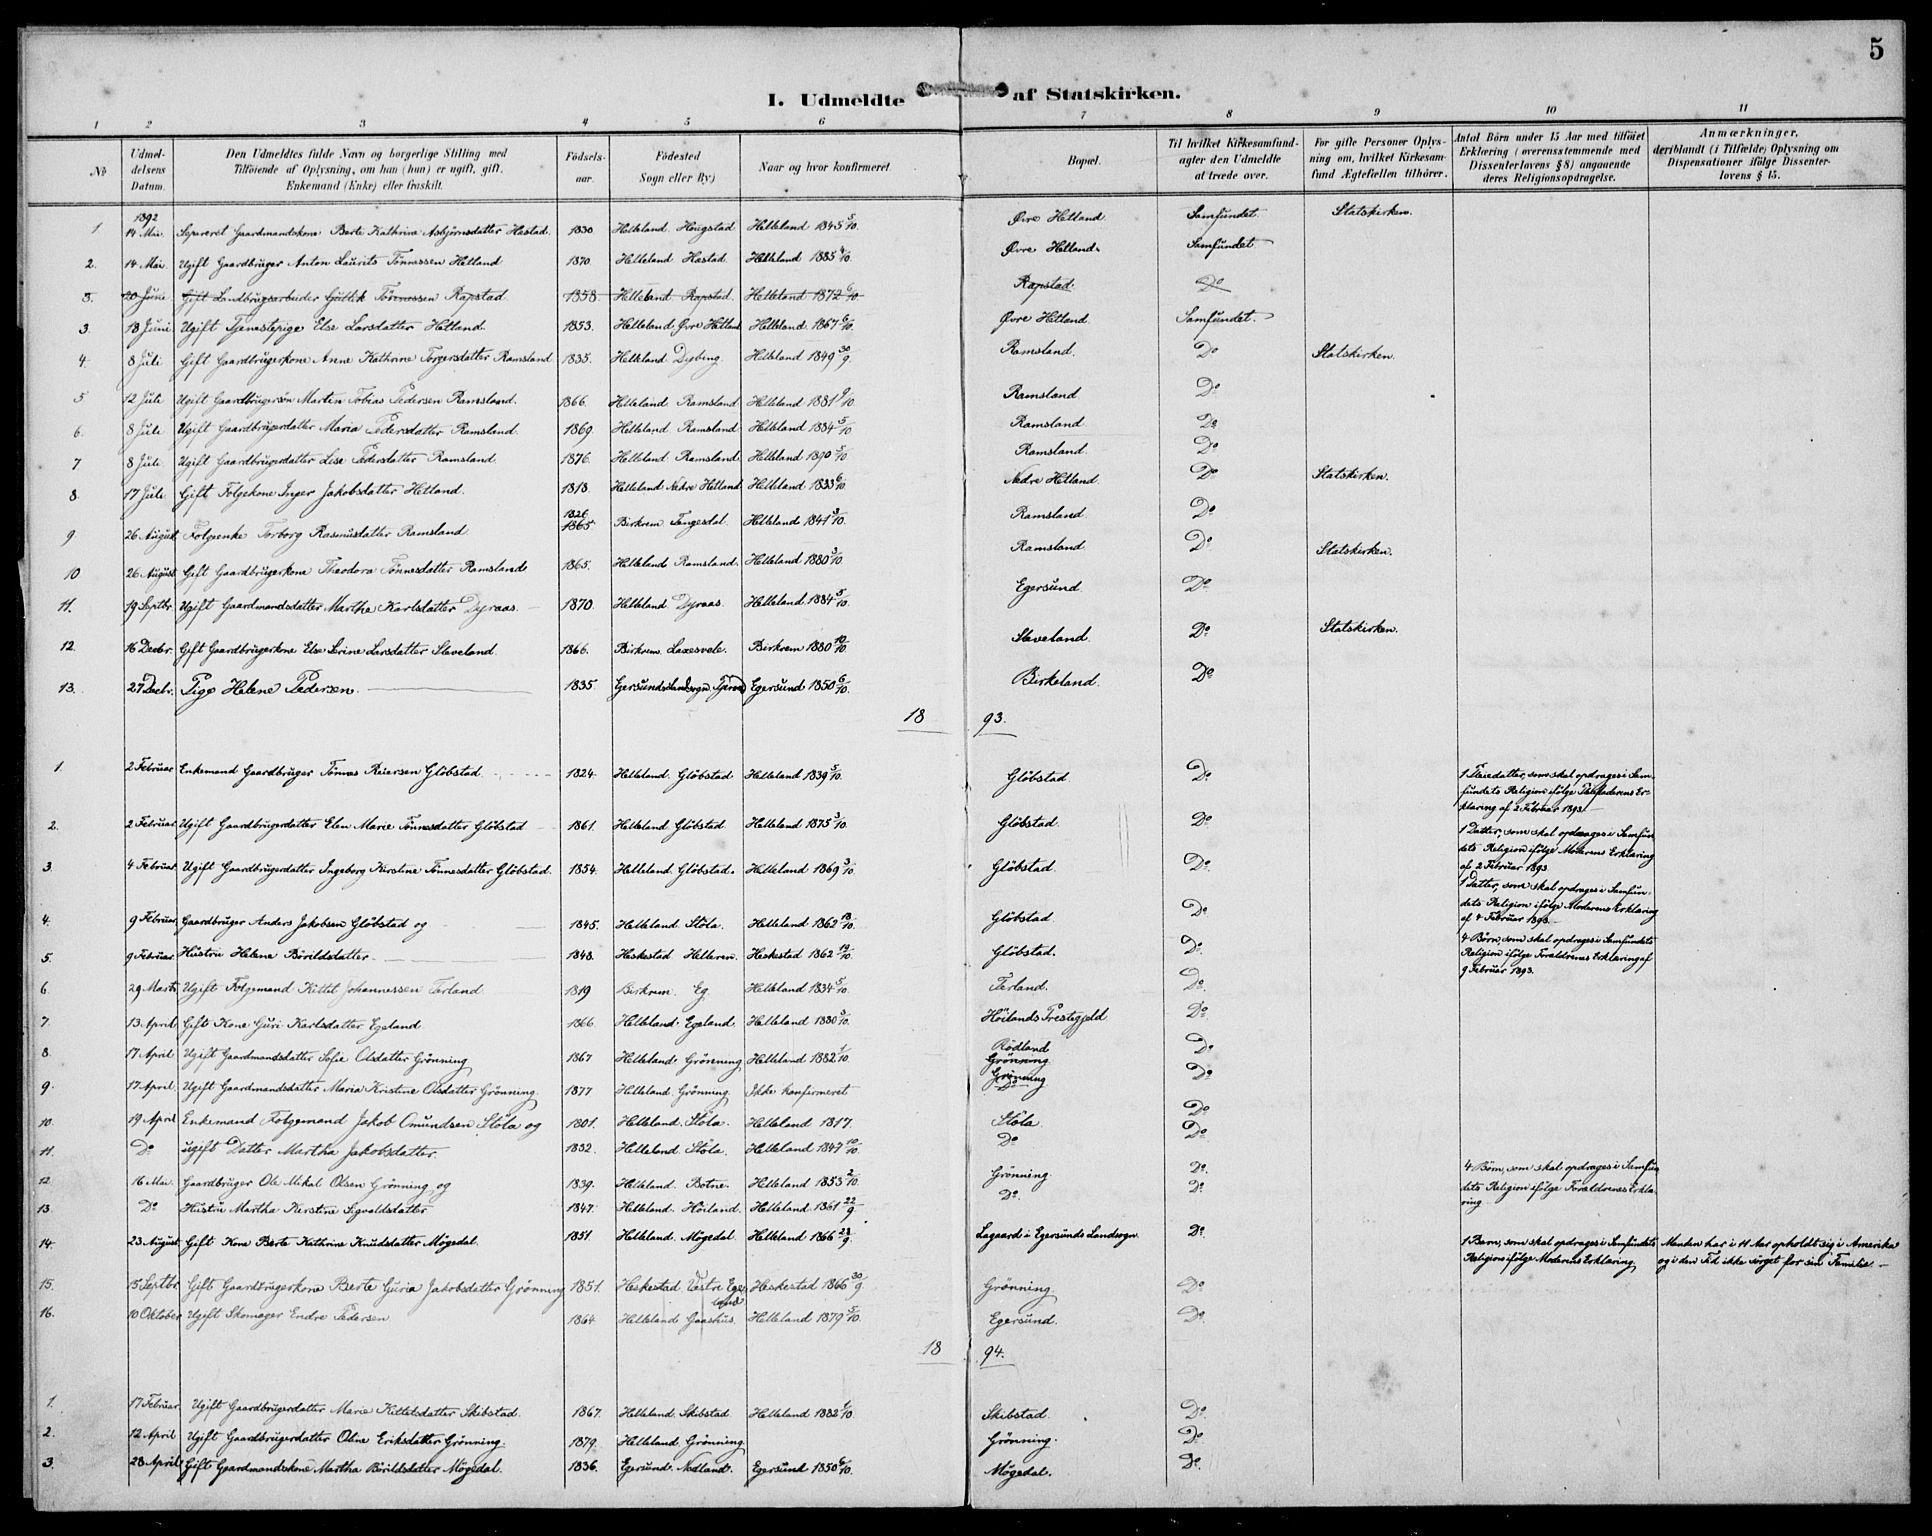 5
I. Udmeldte af Statskirken.
1 2 3 4 5 6 7 8 9 10 11
No
Udmel-
delsens
Datum.
Den Udmeldtes fulde Navn og borgerlige Stilling med
Tilföiende af Oplysning, om han (hun) er ugift, gift,
Enkemand (Enke) eller fraskilt.
Födsels-
aar.
Födested
Sogn eller By)
Naar og hvor konfirmeret
Bopæl.
Til hvilket Kirkesamfund-
agter den Udmeldte
at træde over.
For gifte Personer Oplys-
ning om, hvilket Kirkesam-
fund Ægtefællen tilhörer.
Antal Börn under 15 Aar med tilföiet
Erklæring (overensstemmende med
Dissenterlovens § 8) angaaende
deres Religionsopdragelse.
Anmærkninger,
deriblandt (i Tilfælde) Oplysning om
Dispensationer ifölge Dissenter-
lovens § 15.
1892
1 14 Mai. Separeret Gaardmandskone Berte Kathrine Asbjørnsdatter Hæstad. 1830 Helleland Hougstad Helleland 1845 5/10. Øvre Hetland Samfundet. Statskirken.
2. 14 Mai. Ugift Gaardbruger Anton Laurits Tönnessen Hetland 1870. Helleland Hæstad. Helleland 1885 4/10. Øvre Hetland. Samfundet
3. 20 Juni Gift Landbrugsarbeider Gjöttik Tönnessen Rapstad 1858. Helleland Rapstad. Helleland 1872 6/10 Rapstad. Do
3. 18 Juni Ugift Tjenestepige Else Larsdatter Hetland. 1853. Helleland Øvre Hetland Helleland 1867 6/10. Øvre Hetland. Samfundet.
4. 8 Juli Gift Gaardbrugerkone Anne Kathrine Torgersdatter Ramsland 1835. Helleland Dybing. Helleland 1849 30/9. Ramsland. Do Statskirken.
5 12 Juli Ugift Gaardbrugersön Marten Tobias Pedersen Ramsland. 1866. Helleland Ramsland Helleland 1881 9/10 Ramsland Do
6. 8 Juli Ugift Gaardbrugerdatter Maria Pedersdatter Ramsland. 1869. Helleland Ramsland. Helleland 1884 5/10 Ramsland Do
7 8 Juli Ugift Gaardbrugerdatter Lise Pedersdatter Ramsland. 1876. Helleland Ramsland. Helleland 1890 5/10 Ramsland. Do
8. 17 Juli Gift Folgekone Inger Jakobsdatter Hetland. 1818. Helleland Nedre Hetland Helleland 1833 6/10. Nedre Hetland Do Statskirken.
1826
9. 26 August Folgeenke Torborg Rasmusdatter Ramsland 1865. Birkrem Tengesdal. Helleland 1841 3/10. Ramsland Do
10 26 August Gift Gaardbrugerkone Theodora Tönnesdatter Ramsland 1865. Helleland Ramsland. Helleland 1880 3/10. Ramsland Do Statskirken.
11. 19 Septbr. Ugift Gaardmandsdatter Martha Karlsdatter Dyraas. 1870. Helleland Dyraas. Helleland 1884 5/10. Egersund Do
12. 16 Decbr. Gift Gaardbrugerkone Else Serine Larsdatter Sleveland. 1866. Birkrem Laxesvele. Birkrem 1880 10/10. Sleveland. Do Statskirken.
13. 27 Decbr. Pige Helene Pedersen. 1835. Egersunds Landsogn Egersund 1850 6/10. Birkeland. Do
18 93.
1. 2 Februar Enkemand Gaardbruger Tönnes Reiersen Glöbstad 1824. Helleland. Glöbstad Helleland 1839 5/10. Glöbstad. Do
1 Pleiedatter, som skal opdrages i Sam-
fundets Religion ifölge Pleiefaderens Er-
klæring af 2 Februar 1893.
2. 2 Februar Ugift Gaardbrugerdatter Elen Marie Tönnesdatter Glöbstad 1861. Helleland Glöbstad Helleland 1875 3/10. Glöbstad. Do
1 Datter, som skal opdrages i Samfun
dets Religion ifölge Moderens Erklæring
af 2 Februar 1893
3. 4 Februar Ugift Gaardbrugerdatter Ingeborg Kirstine Tönnesdatter Glöbstad. 1854. Helleland. Glöbstad. Helleland 1869 3/10. Glöbstad. Do
1 Datter, som skal opdrages i Samfun-
dets Religion ifölge Moderens Erklæring
af 4 Februar 1893.
4. 9 Februar Gaardbruger Anders Jakobsen Glöbstad og 1845. Helleland Stöla. Helleland 1862 18/10. Glöbstad Do
4 Börn, som skal opdrages i Samfundets
Religion ifölge Forældrenes Erklæring af
9 Februar 1893.
5. 9 Februar. Hustru Helene Börildsdatter. 1848. Heskestad Helleren. Heskestad 1862 19/10. Glöbstad. Do
6. 29 Marts Ugift Folgemand Kittil Johannessen Terland 1819 Birkrem. Eg. Helleland 1834 5/10. Terland. Do
7. 13 April. Gift Kone Guri Karlsdatter Egeland. 1866. Helleland. Egeland. Helleland 1880 3/10. Höilands Prestegjeld Do
Rødland
8. 17 April Ugift Gaardmandsdatter Sofie Olsdatter Grönning 1867 Helleland. Grönning Helleland 1882 1/10. Grönning Do
9. 17 April. Ugift Gaardmandsdatter Maria Kristine Olsdatter Grönning. 1877 Helleland Grönning. Ikke konfirmeret Grönning Do
Do
10. 19 April Enkemand Folgemand Jakob Omundsen Stöla og 1801. Helleland. Stöla. Helleland 1817. Stöla. Do
11. Do ugift Datter Martha Jakobsdatter. 1832. Helleland Stöla. Helleland 1847 10/10. Do Do
12. 16 Mai. Gaardbruger Ole Mikal Olsen Grönning og 1839. Helleland. Botne. Helleland 1853 2/10. Grönning Do.
4 Börn, som skal opdrages i Samfun
dets Religion ifölge Forældrenes Erklæ-
ring
13. Do Hustru Martha Kirstine Sigvaldsdatter 1847. Helleland. Höiland. Helleland 1861 22/9. Do. Do
14. 23 August Gift Kone Berte Kathrine Knudsdatter Mögedal. 1851 Helleland. Mögedal. Helleland 1866 23/9. Lagaard i Egersunds Landsogn. Do
1 Barn, som skal opdrages i Samfundets
Religion ifölge Moderens Erklæring.
Manden har i 11 Aar opholdt sig i Amerika
og i den Tid ikke sörget for sin Familie.
15. 15 Septbr. Gift Gaardbrugerkone Berte Guria Jakobsdatter Grönning 1851. Heskestad Vestre Ege- Heskestad 1866 30/9. Grönning Do
land
16. 10 Oktober Ugift Skomager Endre Pedersen 1864 Helleland Gaashus. Helleland 1879 5/10. Egersund. Do
18 94.
1. 17 Februar Ugift Gaardbrugerdatter Marie Kittelsdatter Skibstad. 1867. Helleland. Skibstad. Helleland 1882 1/10. Skibstad. Do
2. 12 April Ugift Gaardbrugerdatter Oline Eriksdatter Grönning. 1879. Helleland. Grönning Grönning. Do
3. 28 April Gift Gaardmandskone Martha Börildsdatter Mögedal. 1836. Egersund. Nodland. Egersund 1850 6/10. Mögedal. Do